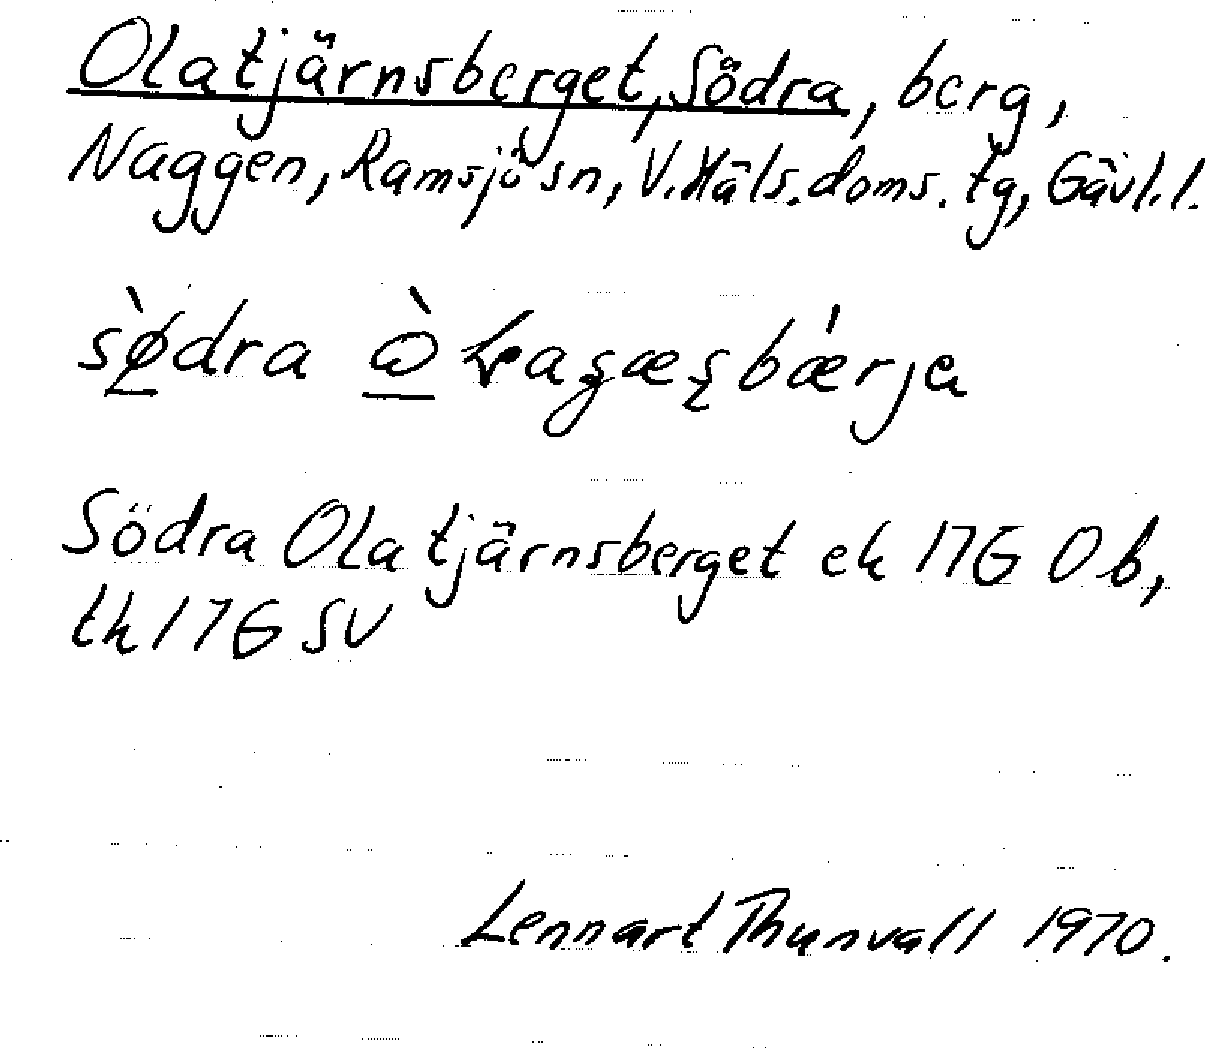 Olatjärnsberget, Södra, berg,
Naggen, Ramsjö sn, V. Häls. doms. tg, Gävl. l.
södra
Södra Olatjärnsberget ek 17G Ob,
tk 17G SV
Lennart Thunvall 1970.